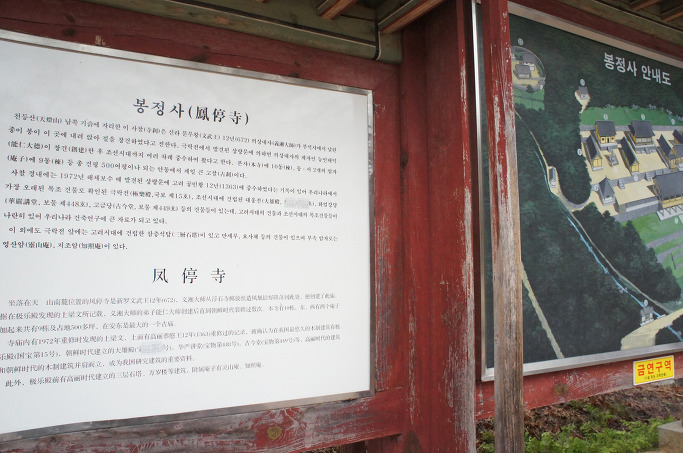 봉정사(鳳停寺)
천등산(天燈山) 남쪽 기슭에 자리한 이 사찰(寺刹)은 신라 문무왕(文武王) 12년(672) 의상대사(義湘大師)가 부석사에서 날린
종이 봉이 이 곳에 내려 앉아 절을 창건하였다고 전한다. 극락전에서 발견된 상량문에 의하면 의상대사의 제자인 능인대덕
(能仁大德)이 창건(創建)한 후 조선시대까지 여러 차례 중수하여 왔다고 한다. 본사(本寺)에 10동(棟), 동·서 고려에 암자
(庵子)에 9동(棟) 등 총 건평 500여평이나 되는 안동에서 제일 큰 고찰(古刹)이다.
사찰 경내에는 1972년 해체보수 때 발견된 상량문에 고려 공민왕 12년(1363)에 중수하였다는 기록이 있어 우리나라에서
가장 오래된 목조 건물로 확인된 극락전(極樂殿,국보 제15호), 조선시대에 건립된 대웅전(大雄殿, 호), 화엄강당
(華嚴講堂, 보물 제448호), 고금당(古今堂, 보물 제449호) 등의 건물들이 있는데, 고려시대의 건물과 조선시대의 목조건물들이
나란히 있어 우리나라 건축연구에 큰 자료가 되고 있다.
이 외에도 극락전 앞에는 고려시대에 건립한 삼층석탑(三層石塔)이 있고 만세루, 요사채 등의 건물이 있으며 부속 암자로는
영산암(靈山庵), 지조암(知照庵)이 있다.
凤停寺
坐落在天 山南麓位置的凤停寺是新罗文武王12年(672)，义湘大师从浮石寺
据在极乐殿发现的上梁文所记载，义湘大师的弟子能仁大师创建后直到朝鲜时代
加起来共有9栋及占地500多坪，在安东是最大的一个古庙。
寺庙内有1972年重修时发现的上梁文，上面有高丽恭愍王12年(1363)重修过的记录，
乐殿(国宝第15号)，朝鲜时代建立的大雄殿( 号)，华严讲堂(宝物第448号)，古今堂(宝物第449号)等，高丽时代的建筑
和朝鲜时代的木制建筑并肩而立，成为我国研究建筑的重要资料。
此外，极乐殿前有高丽时代建立的三层石塔，万岁楼等建筑，附属庵子有灵山庵，知照庵。
봉정사 안내도
금연구역